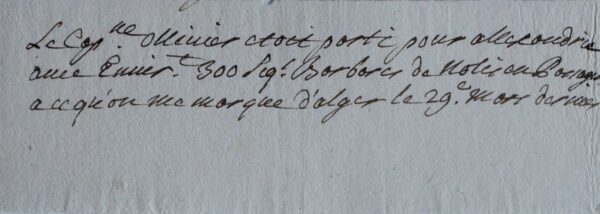 Le Cap.ne Olivier etoit parti pour allexandrie
avec Envir.t 300 Barbares de
a ce qu'on me marque d'alger le 29.e Mars dernier